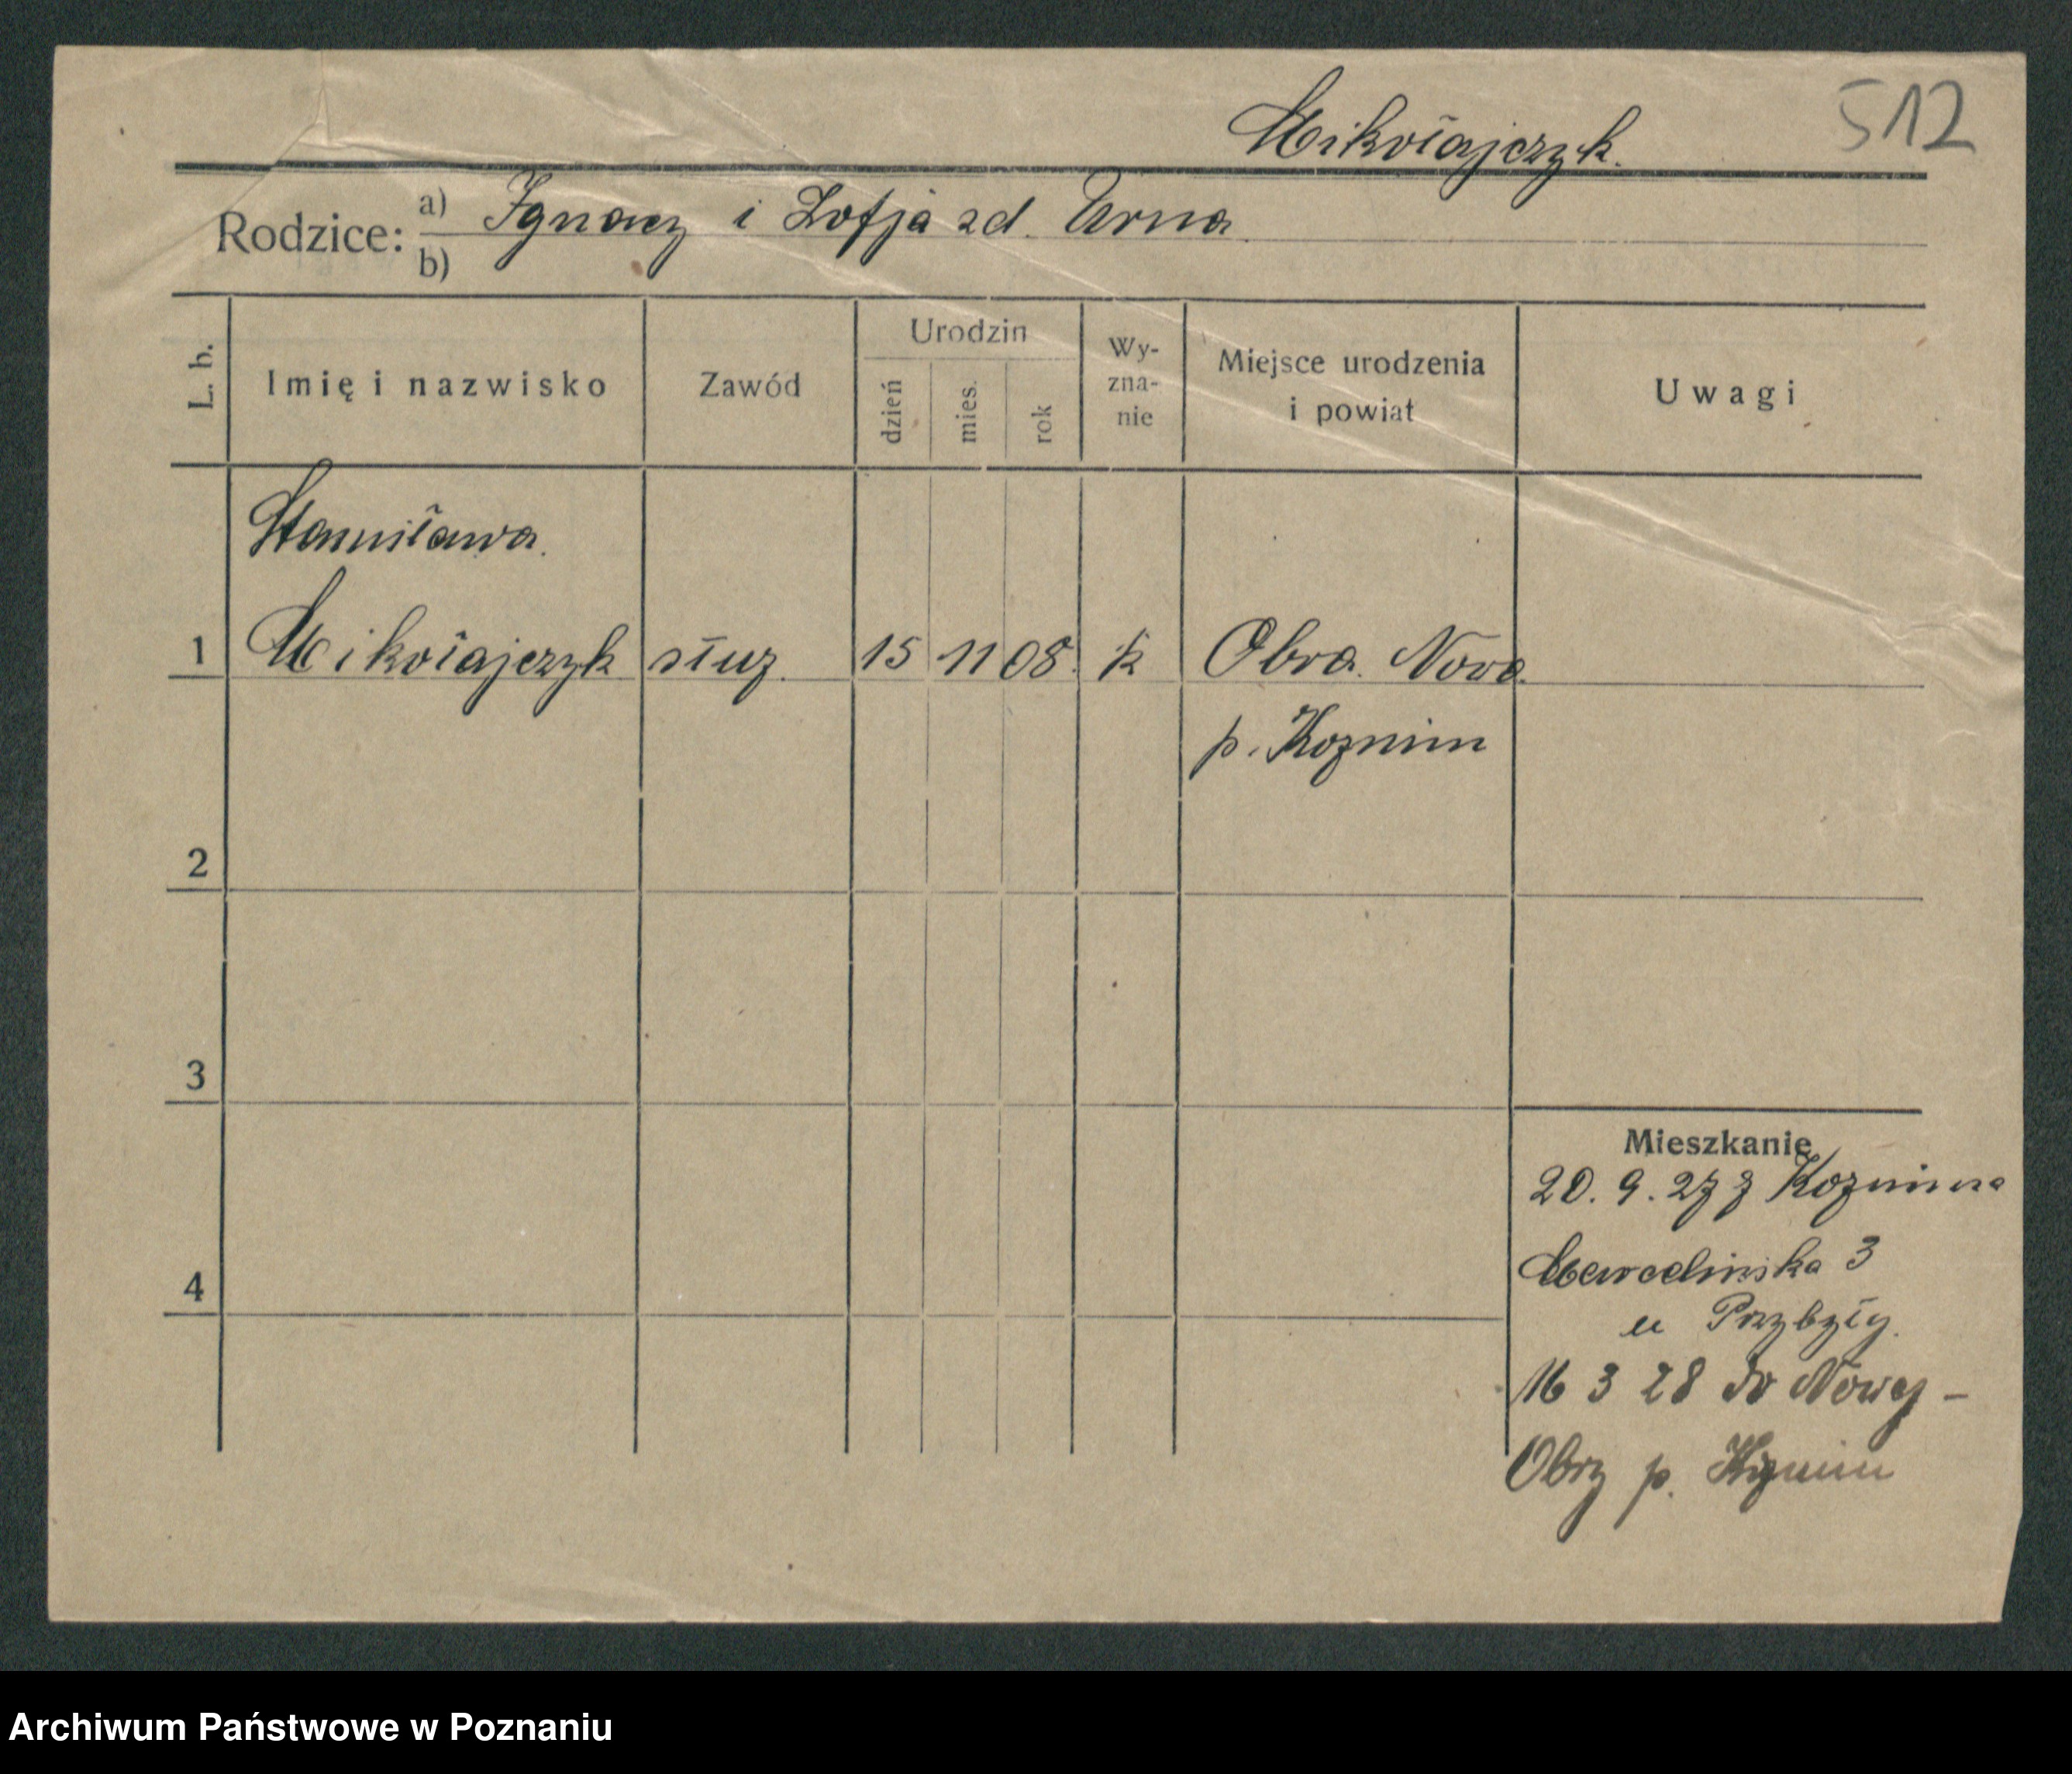 512
Mikołajczyk.
Rodzice: a) Ignacy i Zofja zd. Urna
b)
L. b. Imię i nazwisko Zawód Urodzin dzień mies. rok Wy-zna-nie Miejsce urodzenia i powiat Uwagi
Stanisława.
1 Mikołajczyk służ. 15 11 08. k Obra. Nova.
p. Kozmin
2
3
Mieszkanie
20. 9. 27 z Kozmina
4 Marcelinska 3
u Przybył
16 3 28 do Nowej -
Obry p. Kozmin
Archiwum Państwowe w Poznaniu